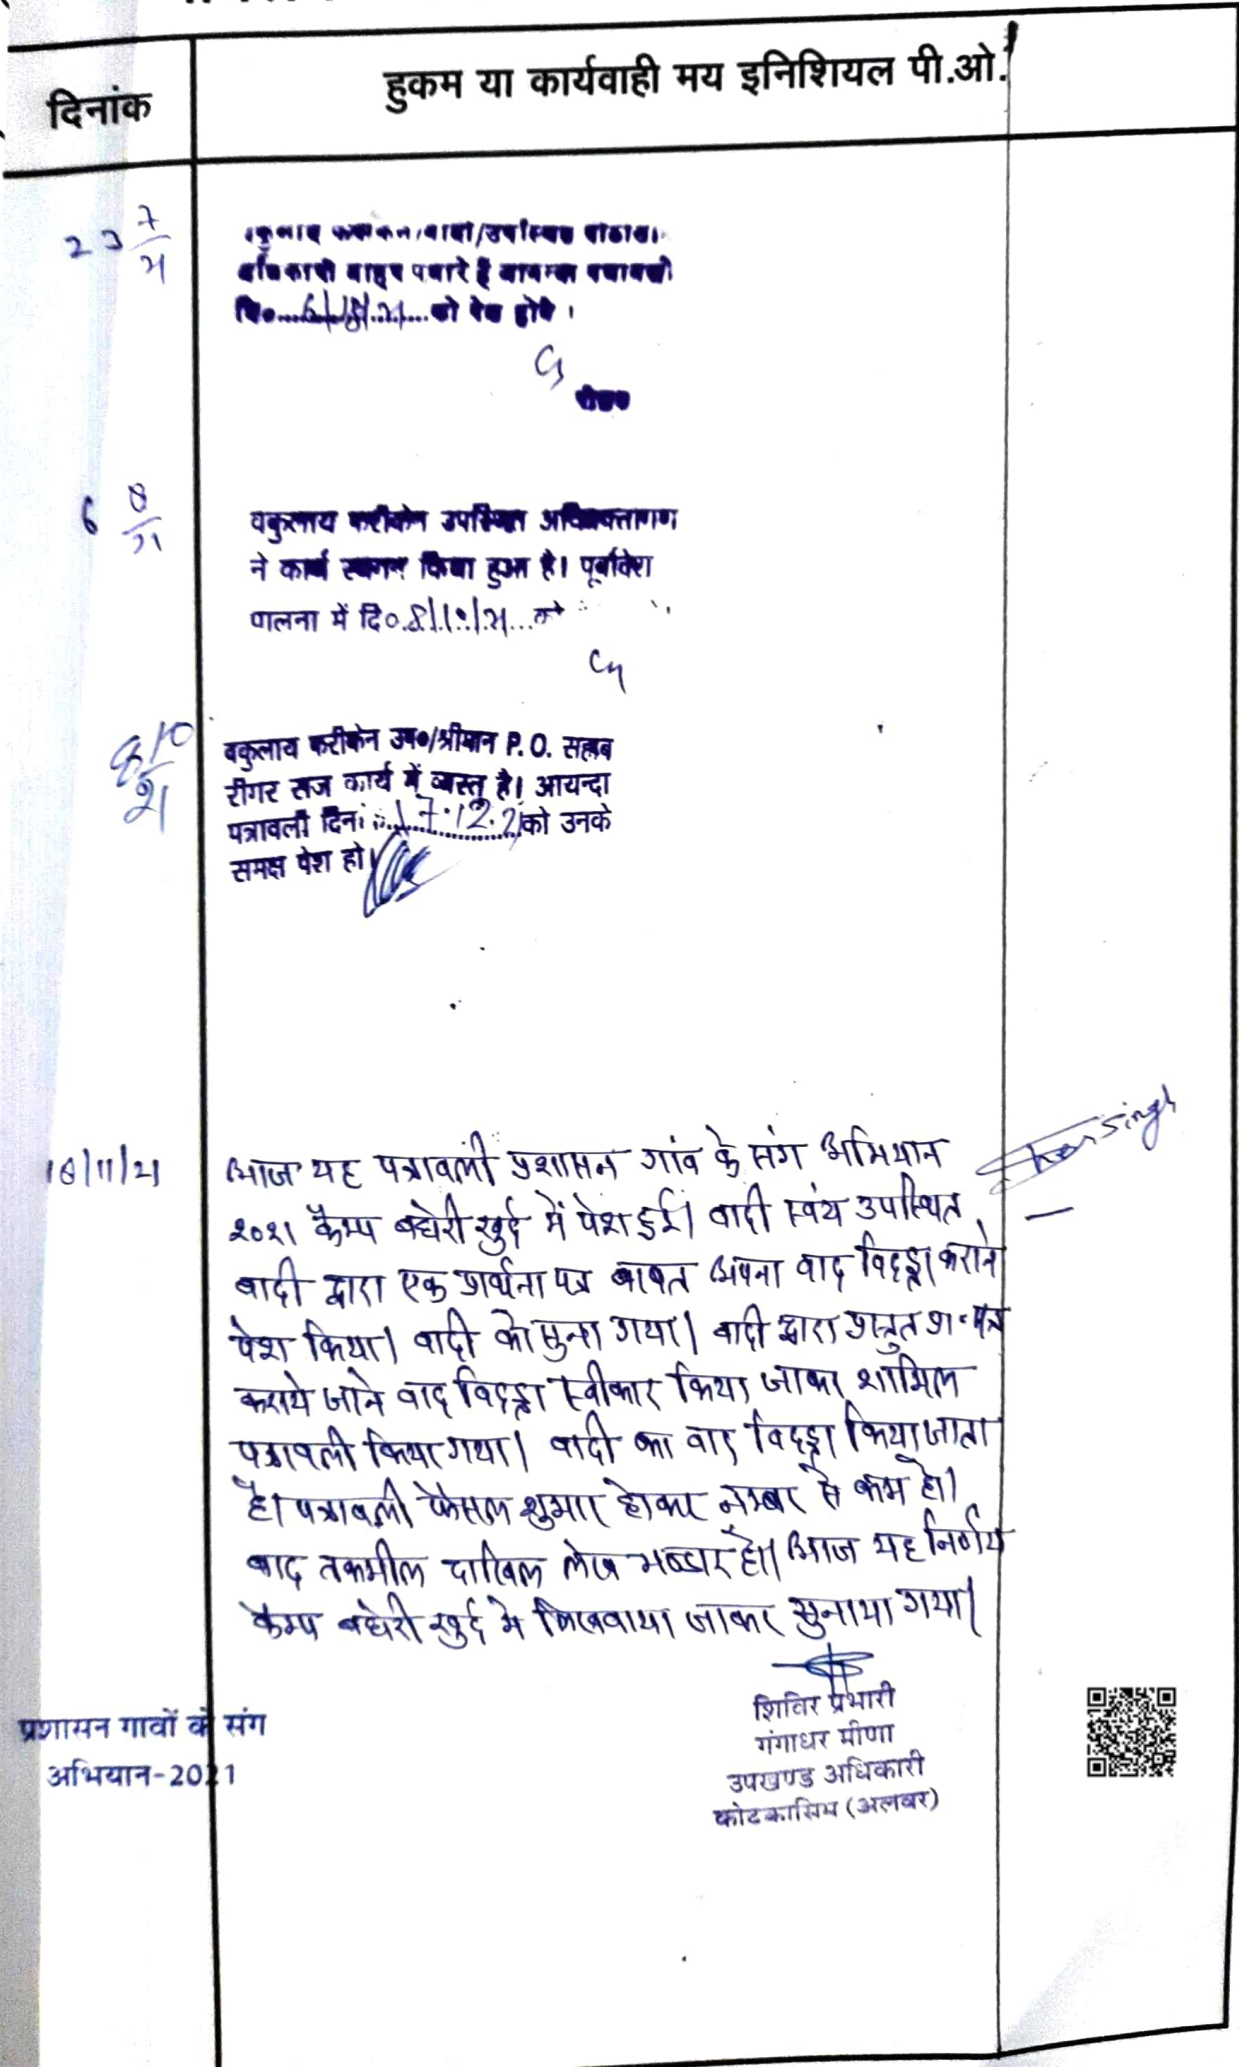 दिनांक
हुकम या कार्यवाही मय इनिशियल पी.ओ.
23 7/21
6/8/21 को पेश होवे ।
6 8/21
वकुलाय फरीकेन उपस्थित अधिवक्तागण
ने कार्य स्थगन किया हुआ है। पूर्वादेश
पालना में दि० 8/10/21 को
8/10/21
वकुलाय फरीकेन उप०/श्रीमान P.O. सहाब
दीगर राज कार्य में व्यस्त है। आयन्दा
पत्रावली दिनां 17.12.21 को उनके
समक्ष पेश हो।
18/11/21
आज यह पत्रावली प्रशासन गांव के संग अभियान
२०२१ कैम्प बघेरी खुर्द में पेश हुई। वादी स्वंय उपस्थित
वादी द्वारा एक प्रार्थना पत्र बाबत अपना वाद विदड्रा कराने
पेश किया। वादी को सुना गया। वादी द्वारा प्रस्तुत प्रा॰ पत्र
कराये जाने वाद विदड्रा स्वीकार किया जाकर शामिल
पत्रावली किया गया। वादी का वाद विदड्रा किया जाता
है। पत्रावली फैसल शुमार होकर नम्बर से कम हो।
बाद तकमील दाखिल लेख भण्डार हो। आज यह निर्णय
कैम्प बघेरी खुर्द में लिखवाया जाकर सुनाया गया।
शिविर प्रभारी
गंगाधर मीणा
उपखण्ड अधिकारी
कोटकासिम (अलवर)
प्रशासन गावों के संग
अभियान-2021